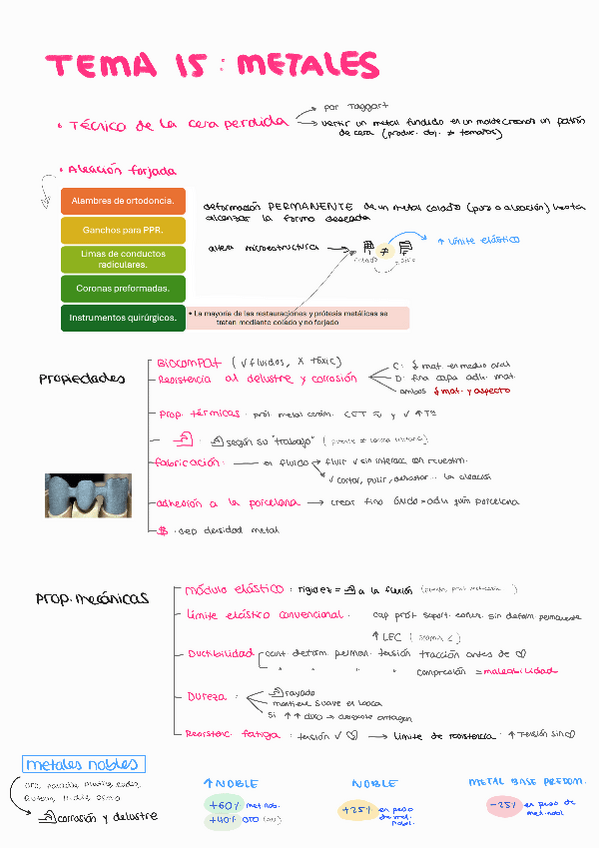 TEMA 15 : METALES
• Técnica de la cera perdida
por Taggart
vertir un metal fundido en un molde creando un patrón
de cera (produc. obj. ≠ tamaños)
• Aleación forjada
Alambres de ortodoncia.
Ganchos para PPR.
Limas de conductos
radiculares.
Coronas preformadas.
Instrumentos quirúrgicos.
deformación PERMANENTE de un metal colado (puro o aleación) hasta
alcanzar la forma deseada
altera microestructura
≠
↑ límite elástico
• La mayoría de las restauraciones y prótesis metálicas se
traten mediante colado y no forjado
Propiedades
Biocompat (√ fluidos, X tóxic)
Resistencia al deslustre y corrosión
C: ↓ mat. en medio oral
D: fina capa adh. mat.
ambos ↓ mat. y aspecto
Prop. térmicas
según su "trabajo"
fabricación:
en fluido
fluir √ sin interacc con revestim.
√ cortar, pulir, la aleación
adhesión a la porcelana → crear fino óxido = adh porcelana
$ · dep densidad metal
Prop. mecánicas
módulo elástico : rigidez = a la flexión
límite elástico convencional · cap prót soport. sin deform permanente
↑ LEC
Ductibilidad
cant deform. perman. tensión tracción antes de
" " " " compresión = maleabilidad
Dureza :
rayado
mantiene suave en boca
Si ↑↑ duro → desgaste antagon
Resistenc. fatiga : tensión √ → límite de resistencia : ↑ tensión sin
metales nobles
oro, paladio, platino, rodio,
rutenio, iridio, osmio
corrosión y deslustre
↑ NOBLE
+60% met nob.
+40% oro
NOBLE
+25% en peso
de met.
nobl.
METAL BASE PREDOM.
-25% en peso de
met. nobl